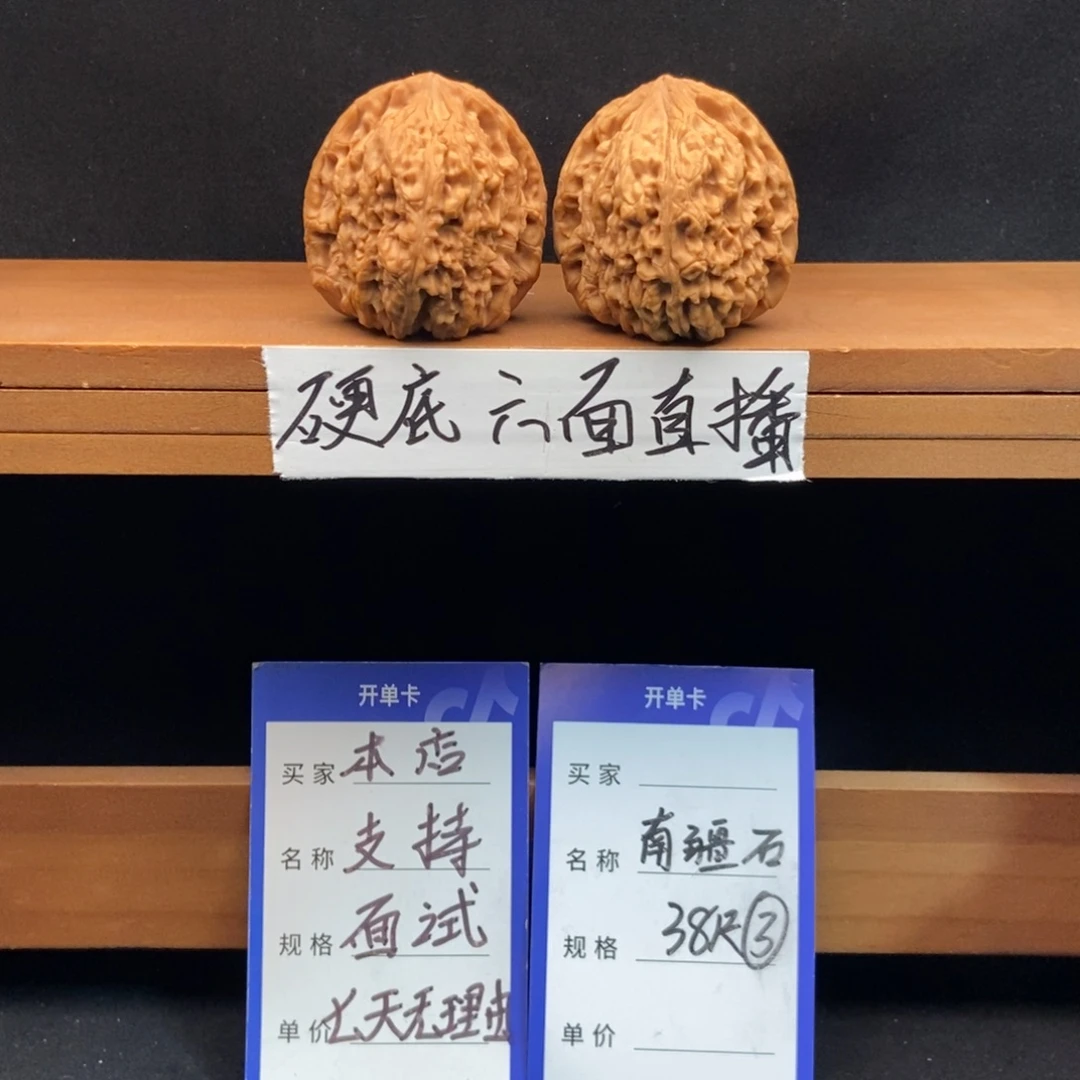 硬底 六面直播
开单卡
买家 本店
名称 支持
规格 面试
单价 七天无理由
开单卡
买家
名称 南疆石
规格 38尺③
单价